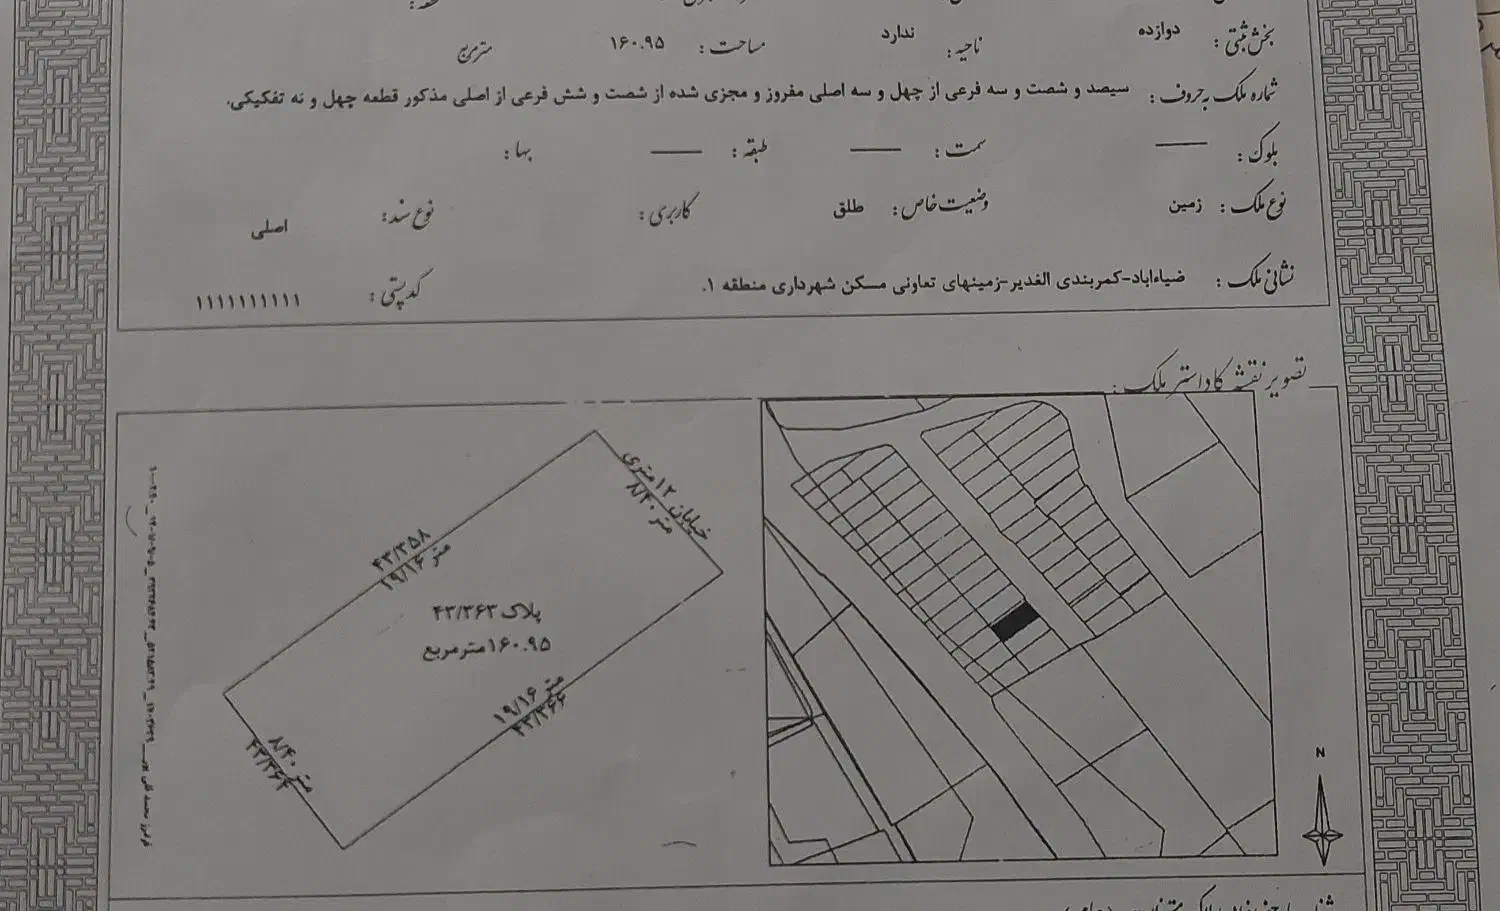 بخش ثبتی : دوازده ناحیه : ندارد مساحت : ۱۶۰.۹۵ مترمربع
شماره ملک به حروف : سیصد و شصت و سه فرعی از چهل و سه اصلی مفروز و مجزی شده از شصت و شش فرعی از اصلی مذکور قطعه چهل و نه تفکیکی.
بلوک : سمت : طبقه : بها :
نوع ملک : زمین وضعیت خاص : طلق کاربری : نوع سند: اصلی
نشانی ملک : ضیاءاباد-کمربندی الغدیر-زمینهای تعاونی مسکن شهرداری منطقه ۱. کدپستی : ۱۱۱۱۱۱۱۱۱۱
تصویر نقشه کاداستر ملک :
خیابان ۱۲ متری
۸/۴۰ متر
۴۳/۳۵۸
۱۹/۱۶ متر
پلاک ۴۳/۳۶۳
۱۶۰.۹۵مترمربع
۱۹/۱۶ متر
۴۳/۳۶۶
۸/۴۰ متر
۴۳/۳۶۴
N